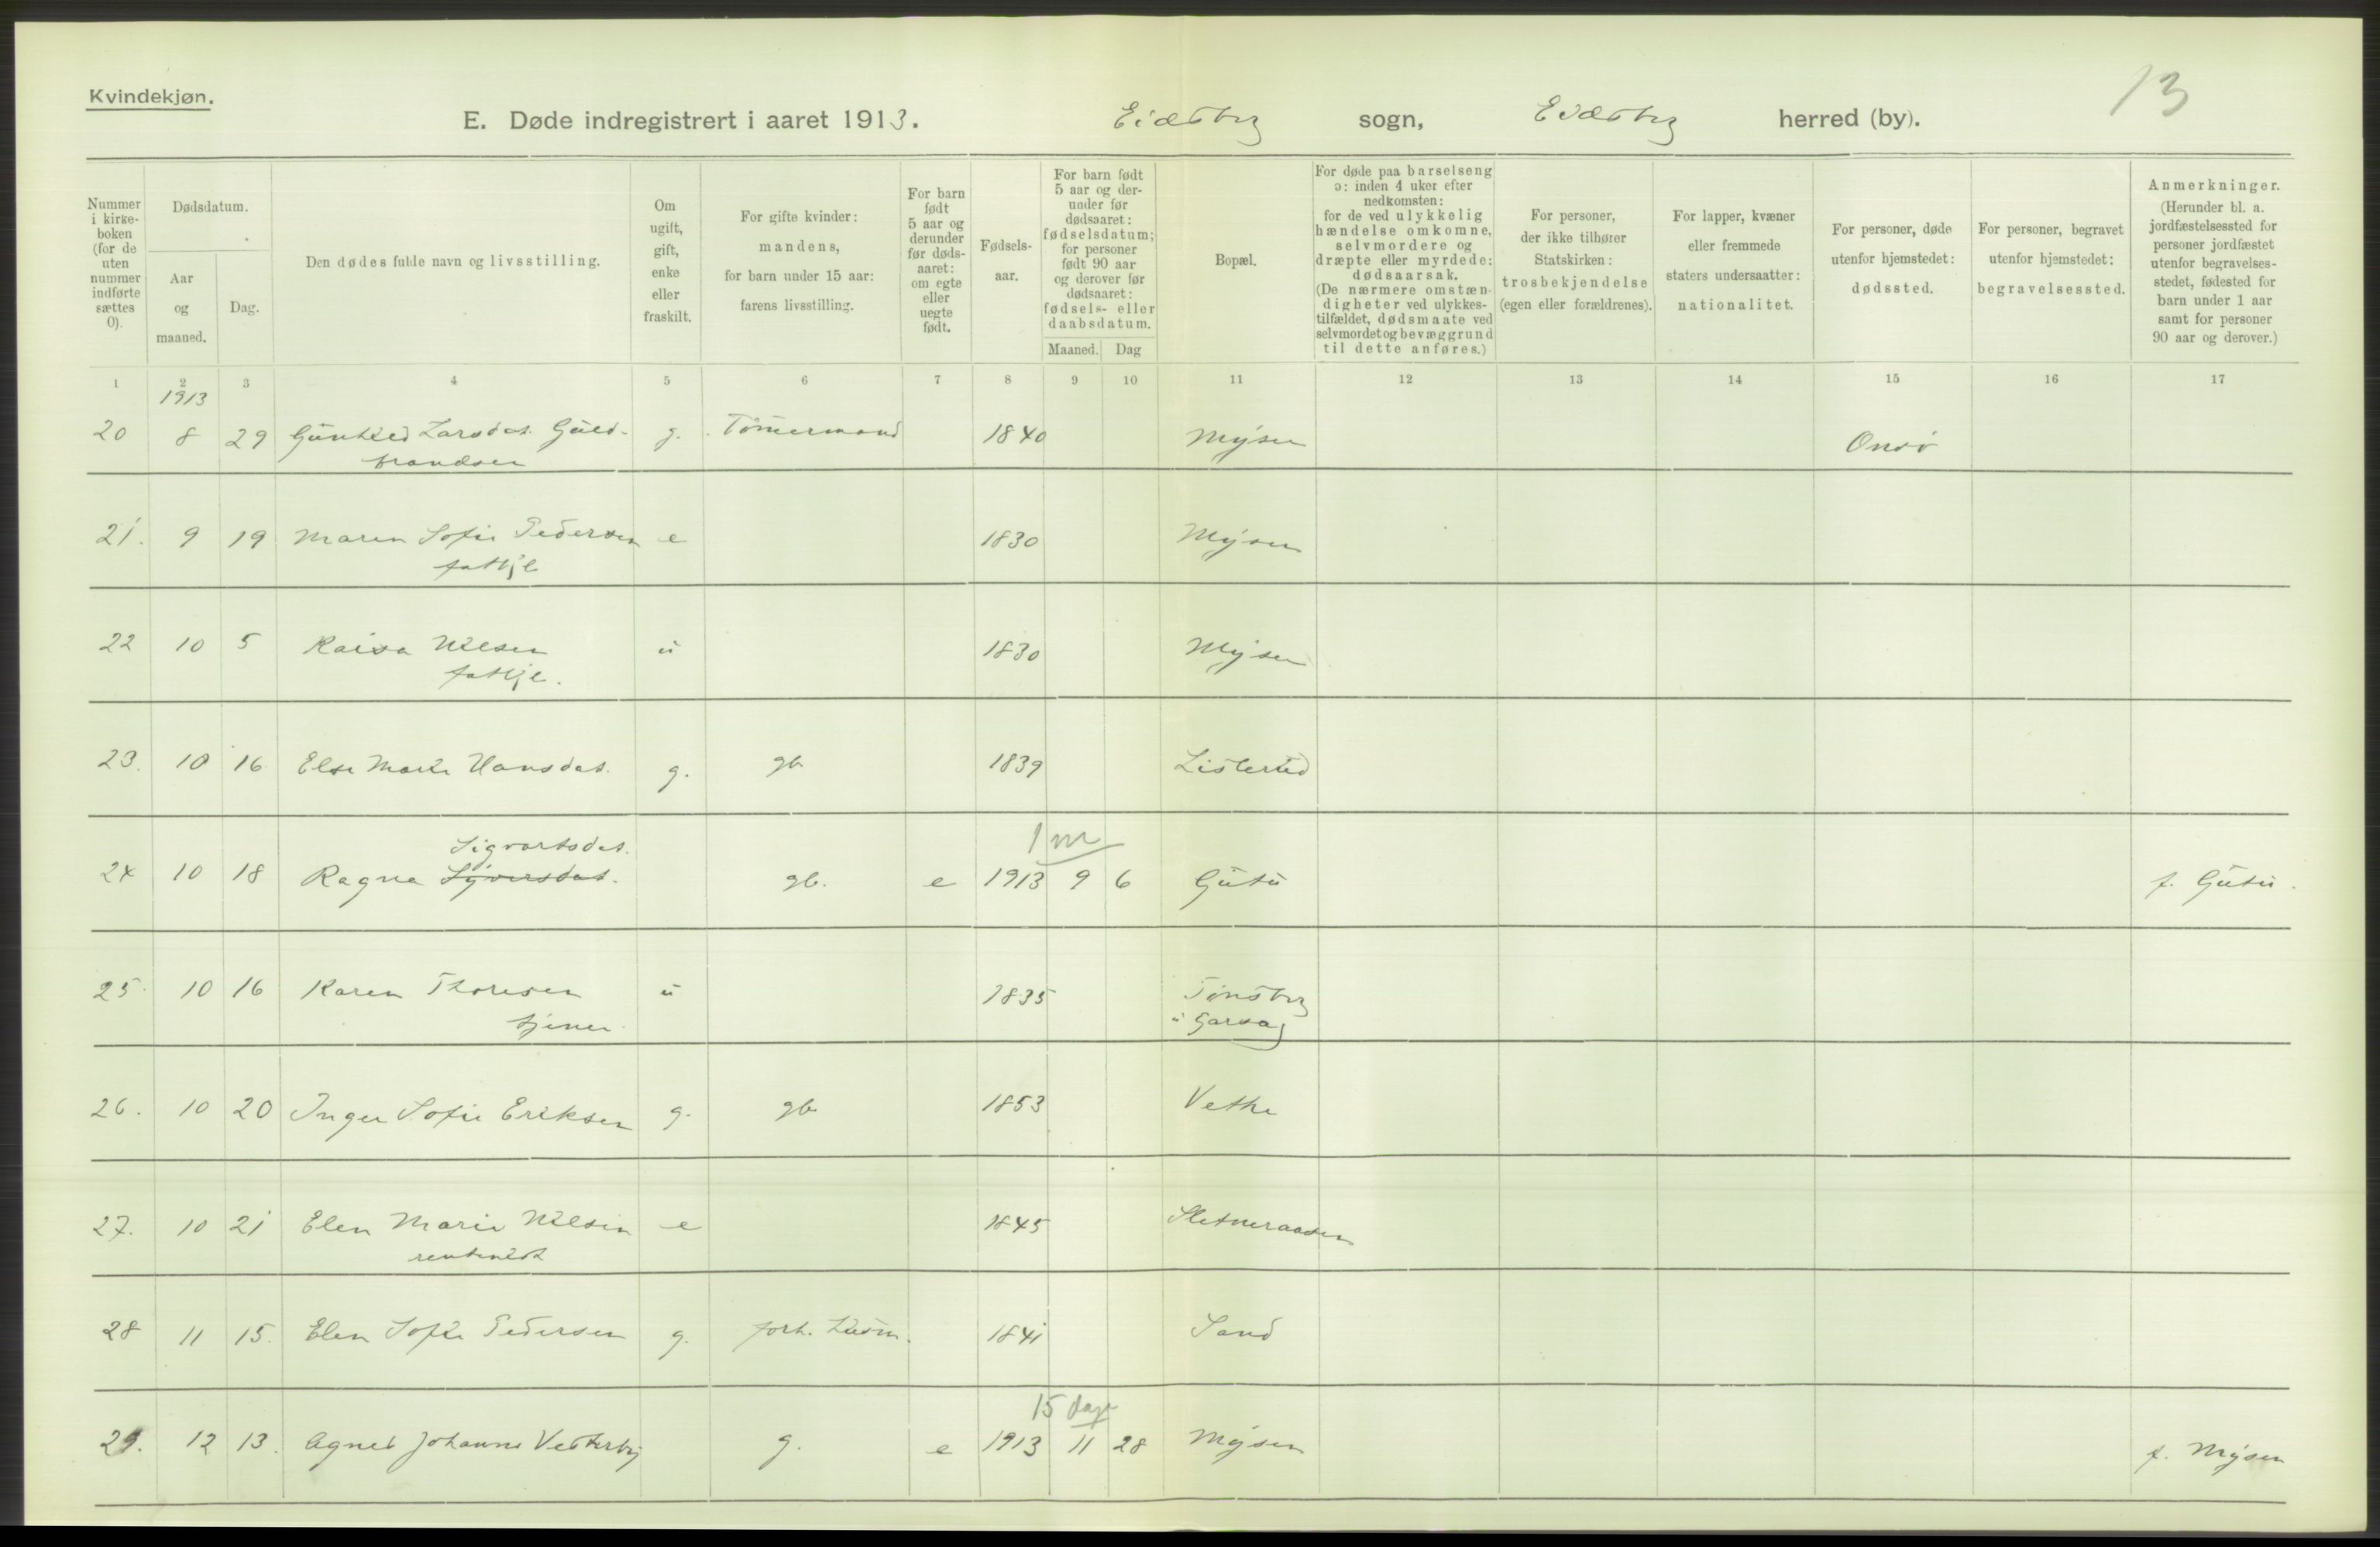 Kvindekjøn.
13
E. Døde indregistrert i aaret 1913. Eidsberg sogn, Eidsberg herred (by).
Nummer i kirke-boken (for de uten nummer indførte sættes 0).
Dødsdatum.
Aar og maaned.
Dag.
Den dødes fulde navn og livsstilling.
Om ugift, gift, enke eller fraskilt.
For gifte kvinder: mandens, for barn under 15 aar: farens livsstilling.
For barn født 5 aar og derunder før døds-aaret: om egte eller uegte født.
Fødsels-aar.
For barn født 5 aar og der-under før dødsaaret: fødselsdatum; for personer født 90 aar og derover før dødsaaret: fødsels- eller daabsdatum.
Maaned. Dag
Bopæl.
For døde paa barselseng ɔ: inden 4 uker efter nedkomsten: for de ved ulykkelig hændelse omkomne, selvmordere og dræpte eller myrdede: dødsaarsak. (De nærmere omstæn-digheter ved ulykkes-tilfældet, dødsmaate ved selvmordet og bevæggrund til dette anføres.)
For personer, der ikke tilhører Statskirken: trosbekjendelse (egen eller forældrenes).
For lapper, kvæner eller fremmede staters undersaatter: nationalitet.
For personer, døde utenfor hjemstedet: dødssted.
For personer, begravet utenfor hjemstedet: begravelsessted.
Anmerkninger. (Herunder bl. a. jordfæstelsessted for personer jordfæstet utenfor begravelses-stedet, fødested for barn under 1 aar samt for personer 90 aar og derover.)
1 2 3 4 5 6 7 8 9 10 11 12 13 14 15 16 17
1913
20 8 29 Gunhild Larsdat. Guld- g. Tømermand 1840 Mysen Onsø
brandsen
21. 9 19 Maren Sofie Pedersen e 1830 Mysen
fattigl
22 10 5 Raisa Nilsen u 1830 Mysen
fattigl.
23. 10 16 Else Marie Hansdat. g. gb 1839 Listerud
Sigvartsdat. 1 m
24 10 18 Ragna Syversdat. gb. e 1913 9 6 Gutu f. Gutu.
25. 10 16 Karen Thoresen u 1835 Tønsberg
tjener. u Garsag
26. 10 20 Inger Sofie Eriksen g. gb 1853 Vethe
27. 10 21 Elen Marie Nilsen e 1845 Sletneraaden
28 11 15. Elen Sofie Pedersen g. forh. husm. 1841 Sand
15 dage
29. 12 13. Agnes Johanne Vesterby g. e 1913 11 28 Mysen f. Mysen